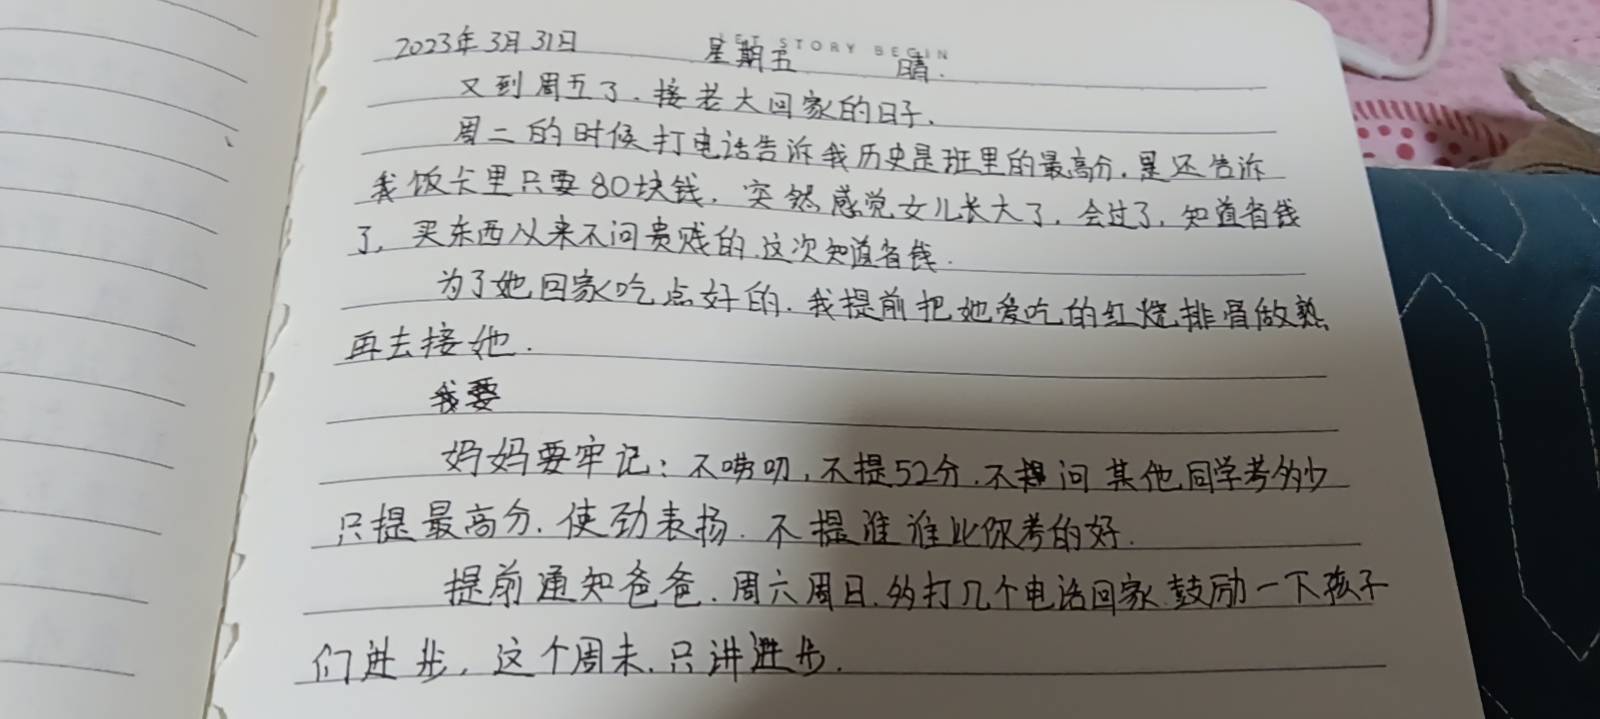 LET STORY BEGIN
2023年3月31日 星期五 晴.
又到周五了.接老大回家的日子.
周二的时候打电话告诉我历史是班里的最高分.还告诉
我饭卡里只要80块钱.突然感觉女儿长大了.会过了.知道省钱
了.买东西从来不问贵贱的.这次知道省钱.
为了她回家吃点好的.我提前把她爱吃的红烧排骨做熟
再去接她.
我要
妈妈要牢记:不唠叨,不提52分.不问其他同学考多少
只提最高分.使劲表扬.不提谁谁比你考的好.
提前通知爸爸.周六周日.多打几个电话回家.鼓励一下孩子
们进步.这个周末.只讲进步.